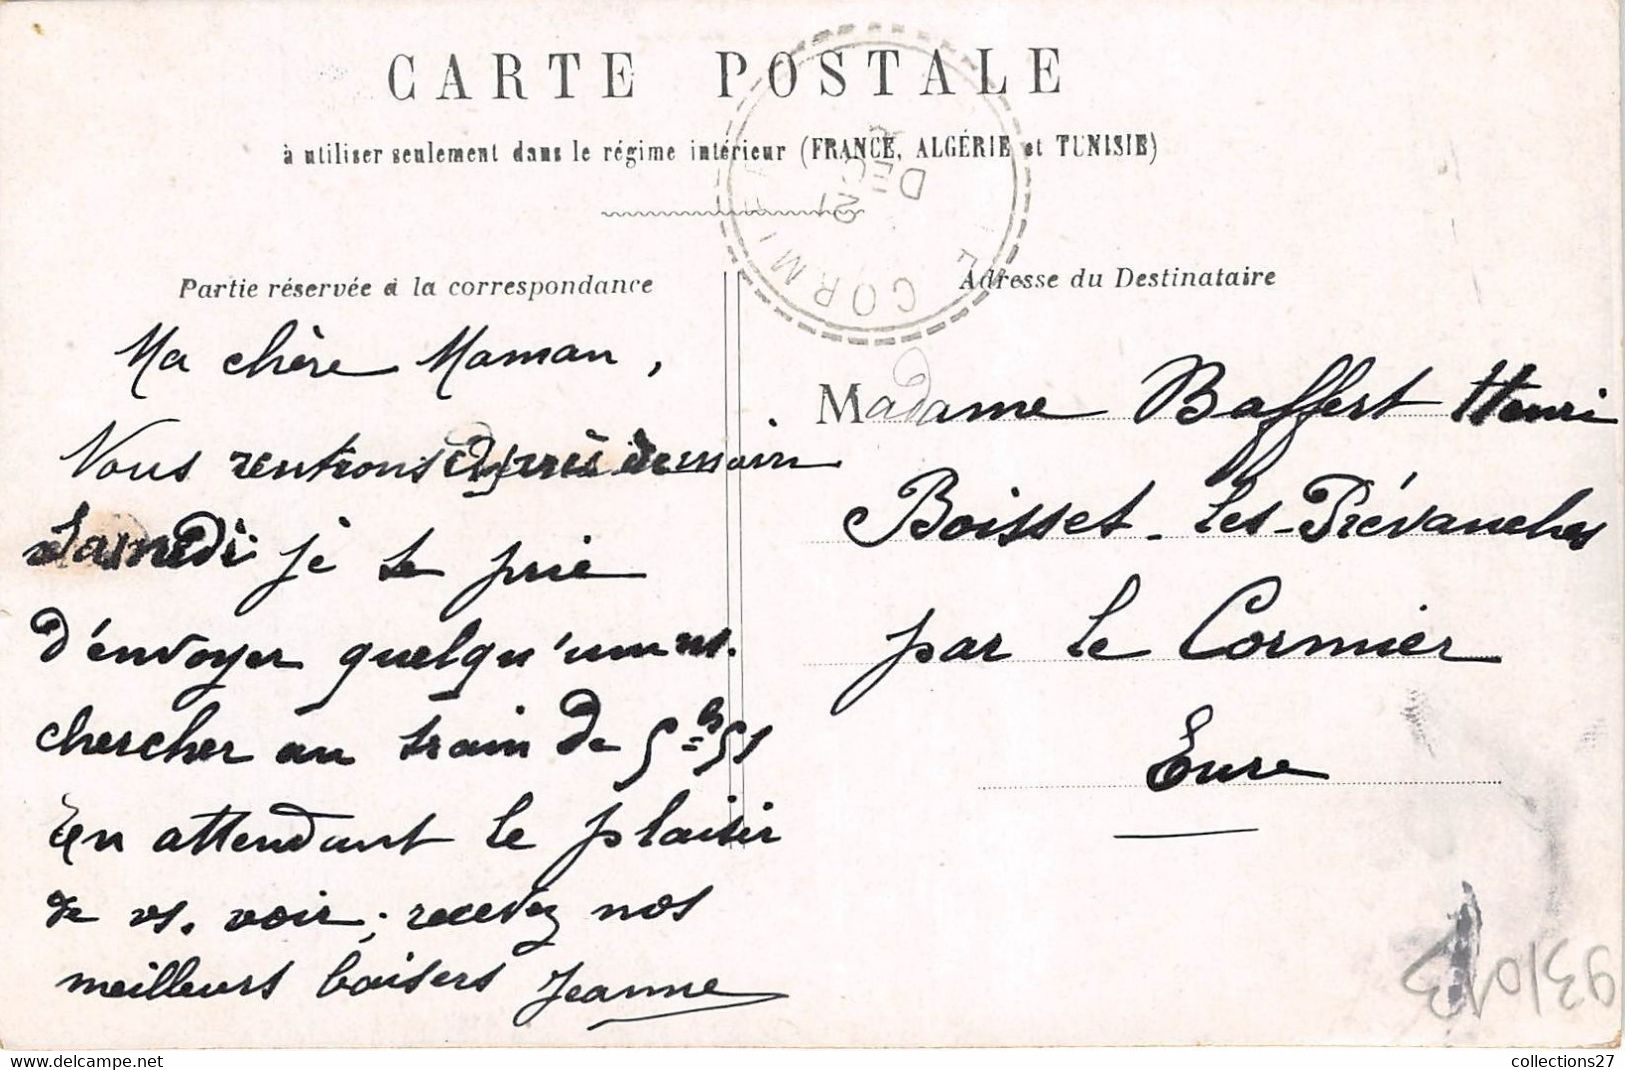 CARTE POSTALE
à utiliser seulement dans le régime intérieur (FRANCE, ALGÉRIE et TUNISIE)
DEC 21
LE CORMIER
Partie réservée à la correspondance
Ma chère Maman,
Nous rentrons après demain
Samedi je te prie
d'envoyer quelqu'un ns.
chercher au train de 5h51
En attendant le plaisir
de vs. voir, recevez nos
meilleurs baisers Jeanne
Adresse du Destinataire
Madame Baffert Henri
Boisset-les-Prévanches
par le Cormier
Eure
93/013
collections27